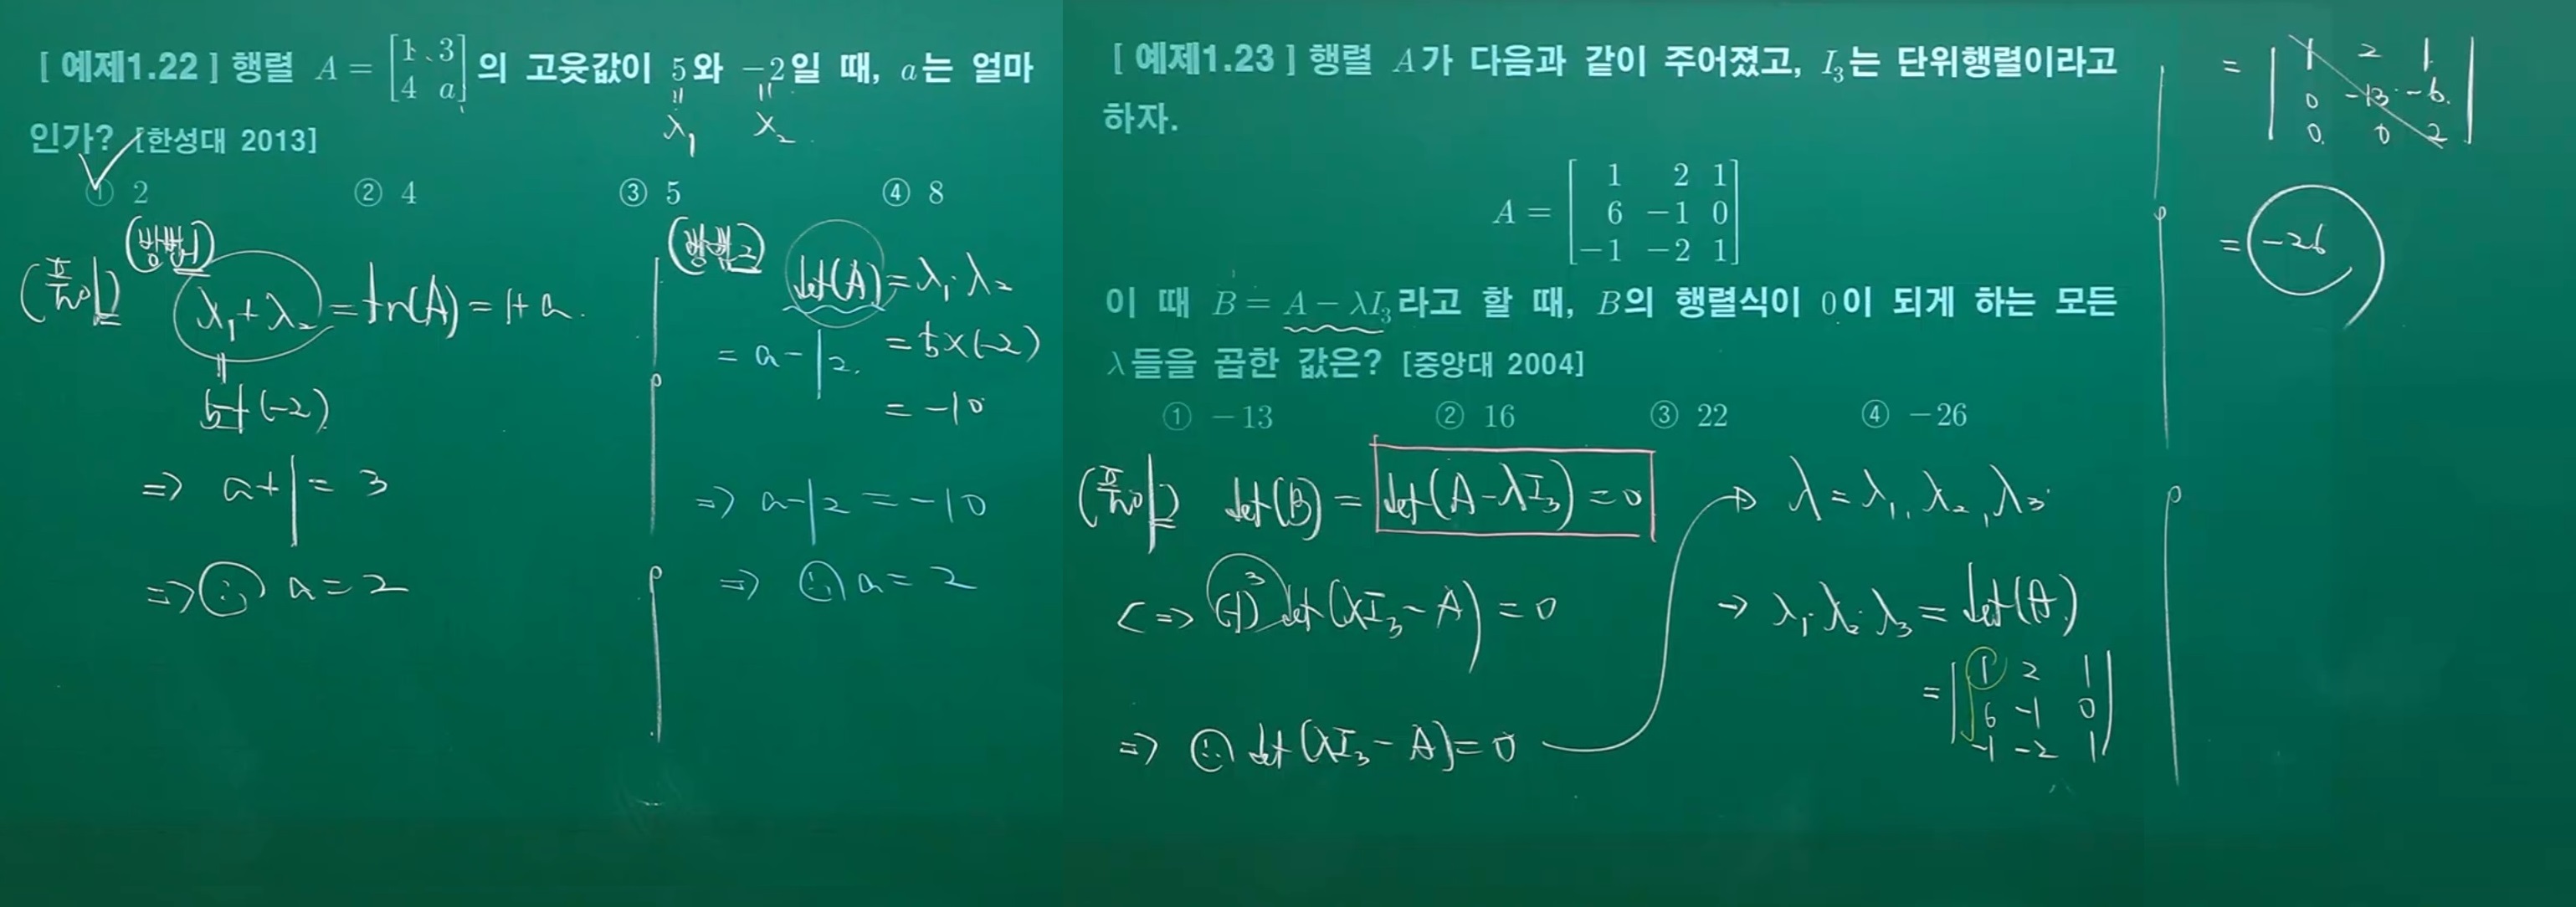 [ 예제1.22 ] 행렬 A = [1 3; 4 a] 의 고윳값이 5와 −2일 때, a는 얼마
λ₁ λ₂
인가? [한성대 2013]
① 2 ② 4 ③ 5 ④ 8
(풀이) (방법1)
λ₁+λ₂ = tr(A) = 1+a.
5+(-2)
⇒ a+1 = 3
⇒ ∴ a = 2
(방법2)
det(A) = λ₁·λ₂
= a-12. = 5×(-2)
= -10
⇒ a-12 = -10
⇒ ∴ a = 2
[ 예제1.23 ] 행렬 A가 다음과 같이 주어졌고, I₃는 단위행렬이라고
하자.
A = [1 2 1; 6 −1 0; −1 −2 1]
이 때 B = A − λI₃라고 할 때, B의 행렬식이 0이 되게 하는 모든
λ들을 곱한 값은? [중앙대 2004]
① −13 ② 16 ③ 22 ④ −26
(풀이) det(B) = det(A-λI₃) = 0
⟺ (-1)³ det(λI₃-A) = 0
⇒ ∴ det(λI₃-A) = 0
→ λ = λ₁, λ₂, λ₃
→ λ₁·λ₂·λ₃ = det(A)
= |1 2 1; 6 -1 0; -1 -2 1|
= |1 2 1; 0 -13 -6; 0 0 2|
= -26